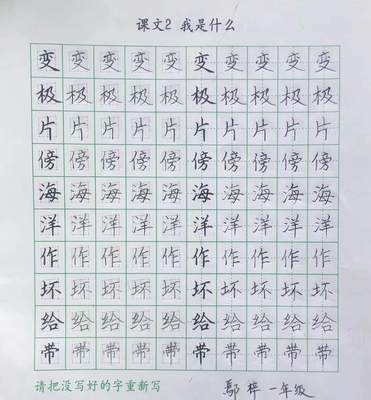 课文2 我是什么
变变变变变变变变变变
极极极极极极极极极极
片片片片片片片片片片
傍傍傍傍傍傍傍傍傍傍
海海海海海海海海海海
洋洋洋洋洋洋洋洋洋洋
作作作作作作作作作作
坏坏坏坏坏坏坏坏坏坏
给给给给给给给给给给
带带带带带带带带带带
请把没写好的字重新写
梓 一年级